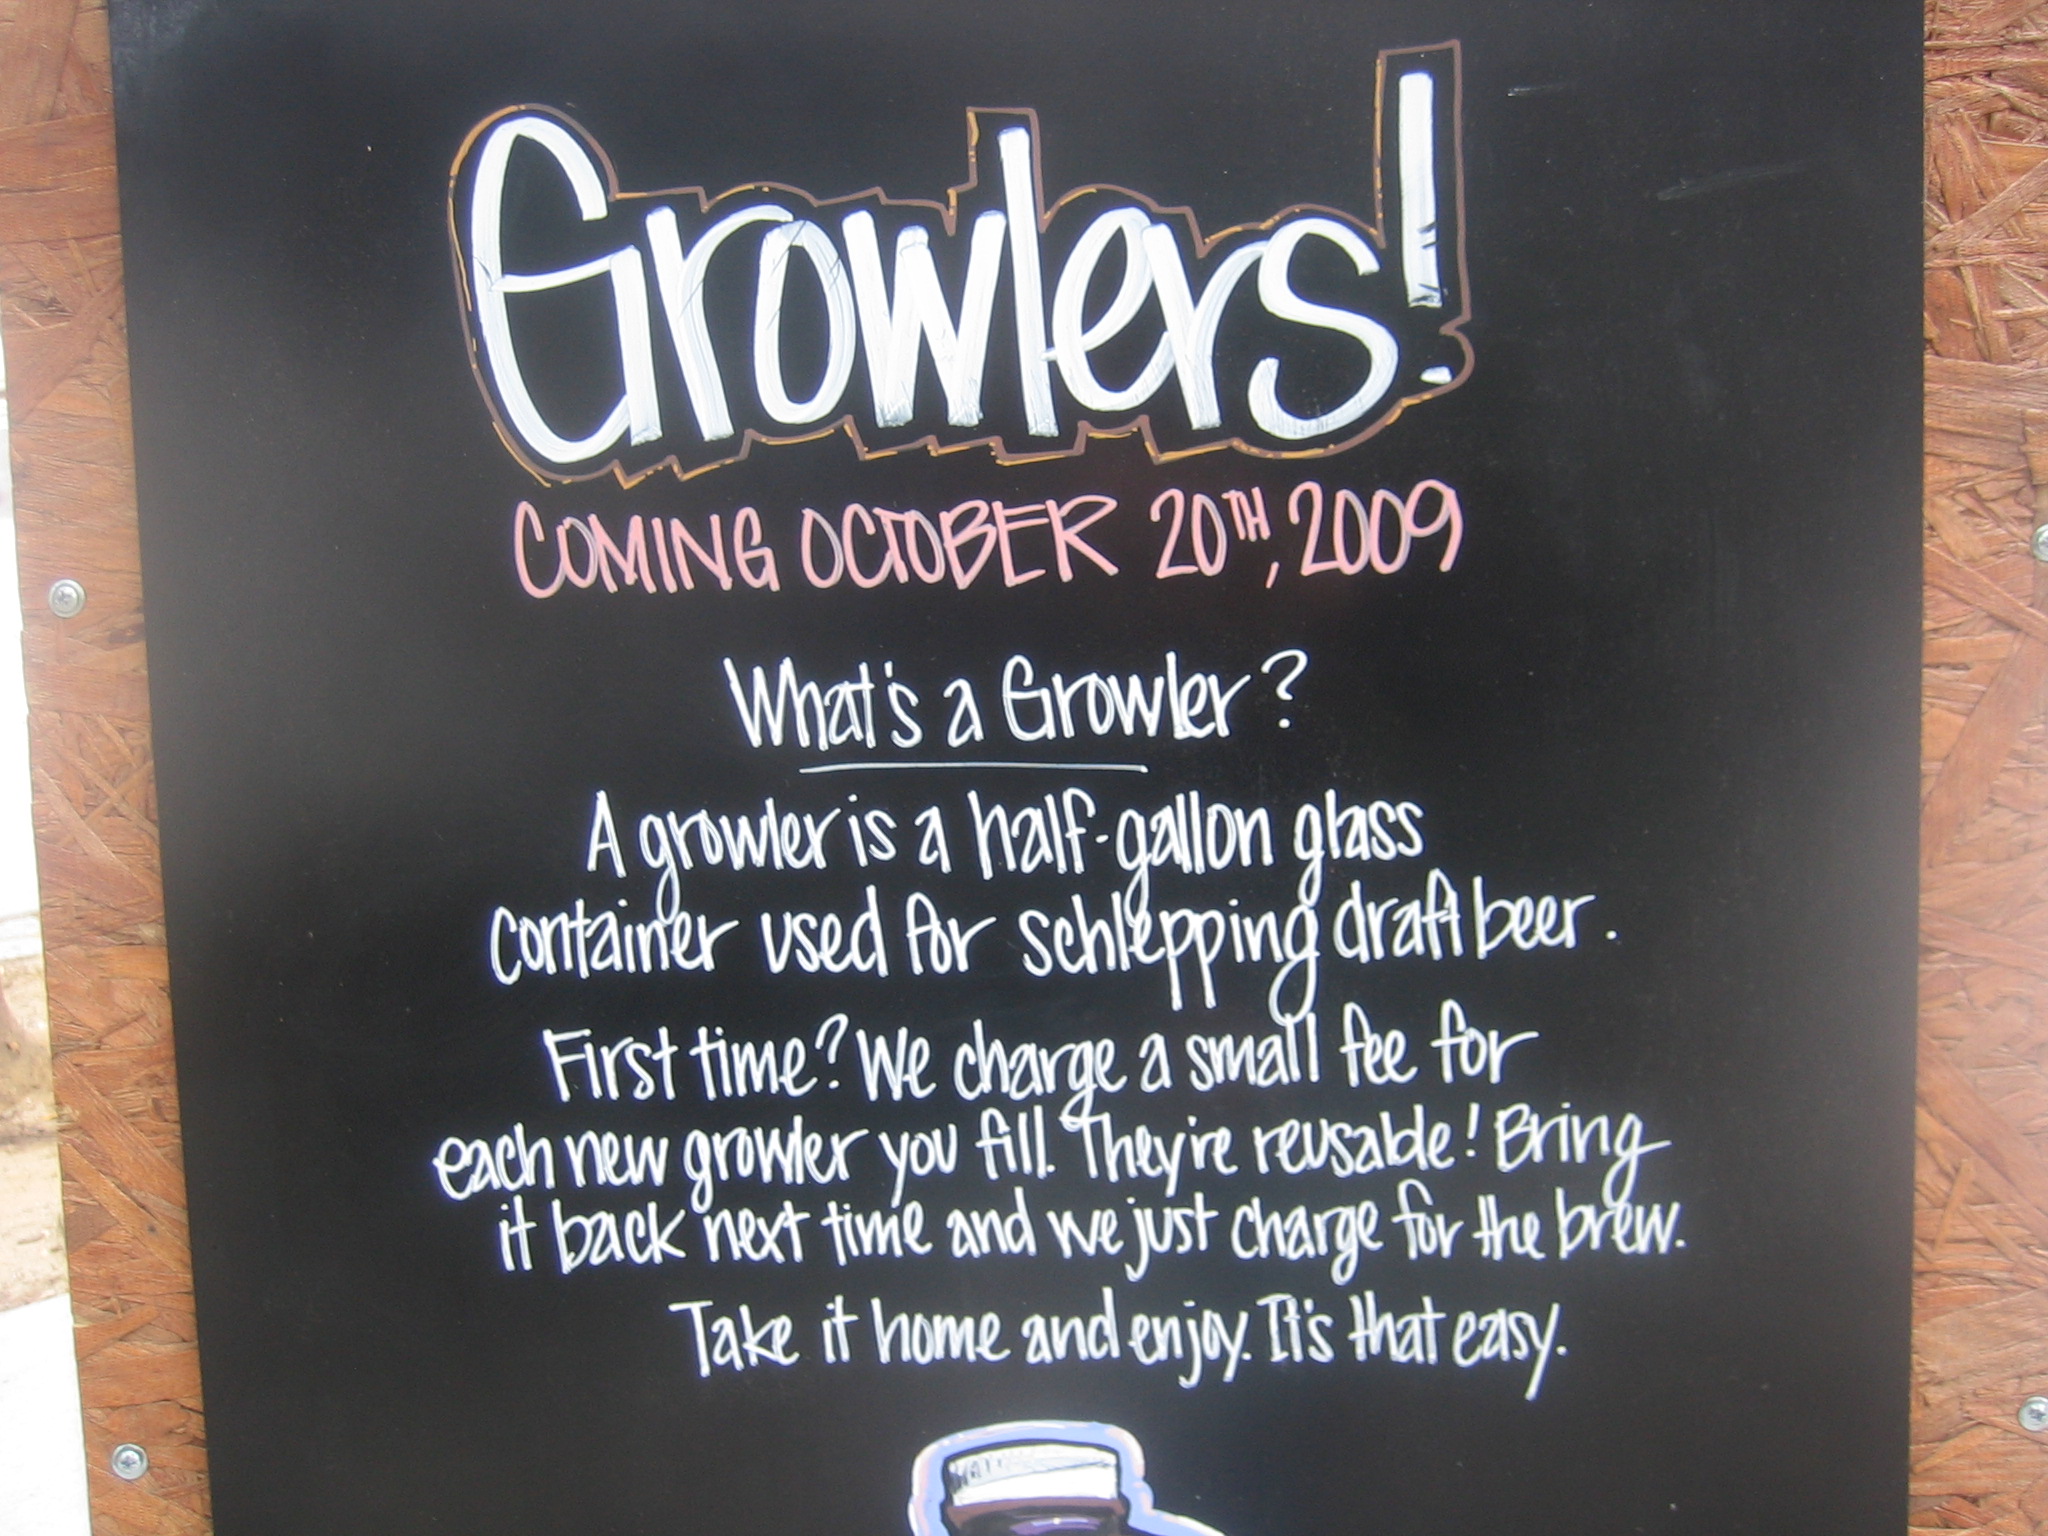 Growlers!
COMING OCTOBER 20TH, 2009
What's a Growler?
A growler is a half-gallon glass
container used for schlepping draft beer.
First time? We charge a small fee for
each new growler you fill. They're reusable! Bring
it back next time and we just charge for the brew.
Take it home and enjoy. It's that easy.